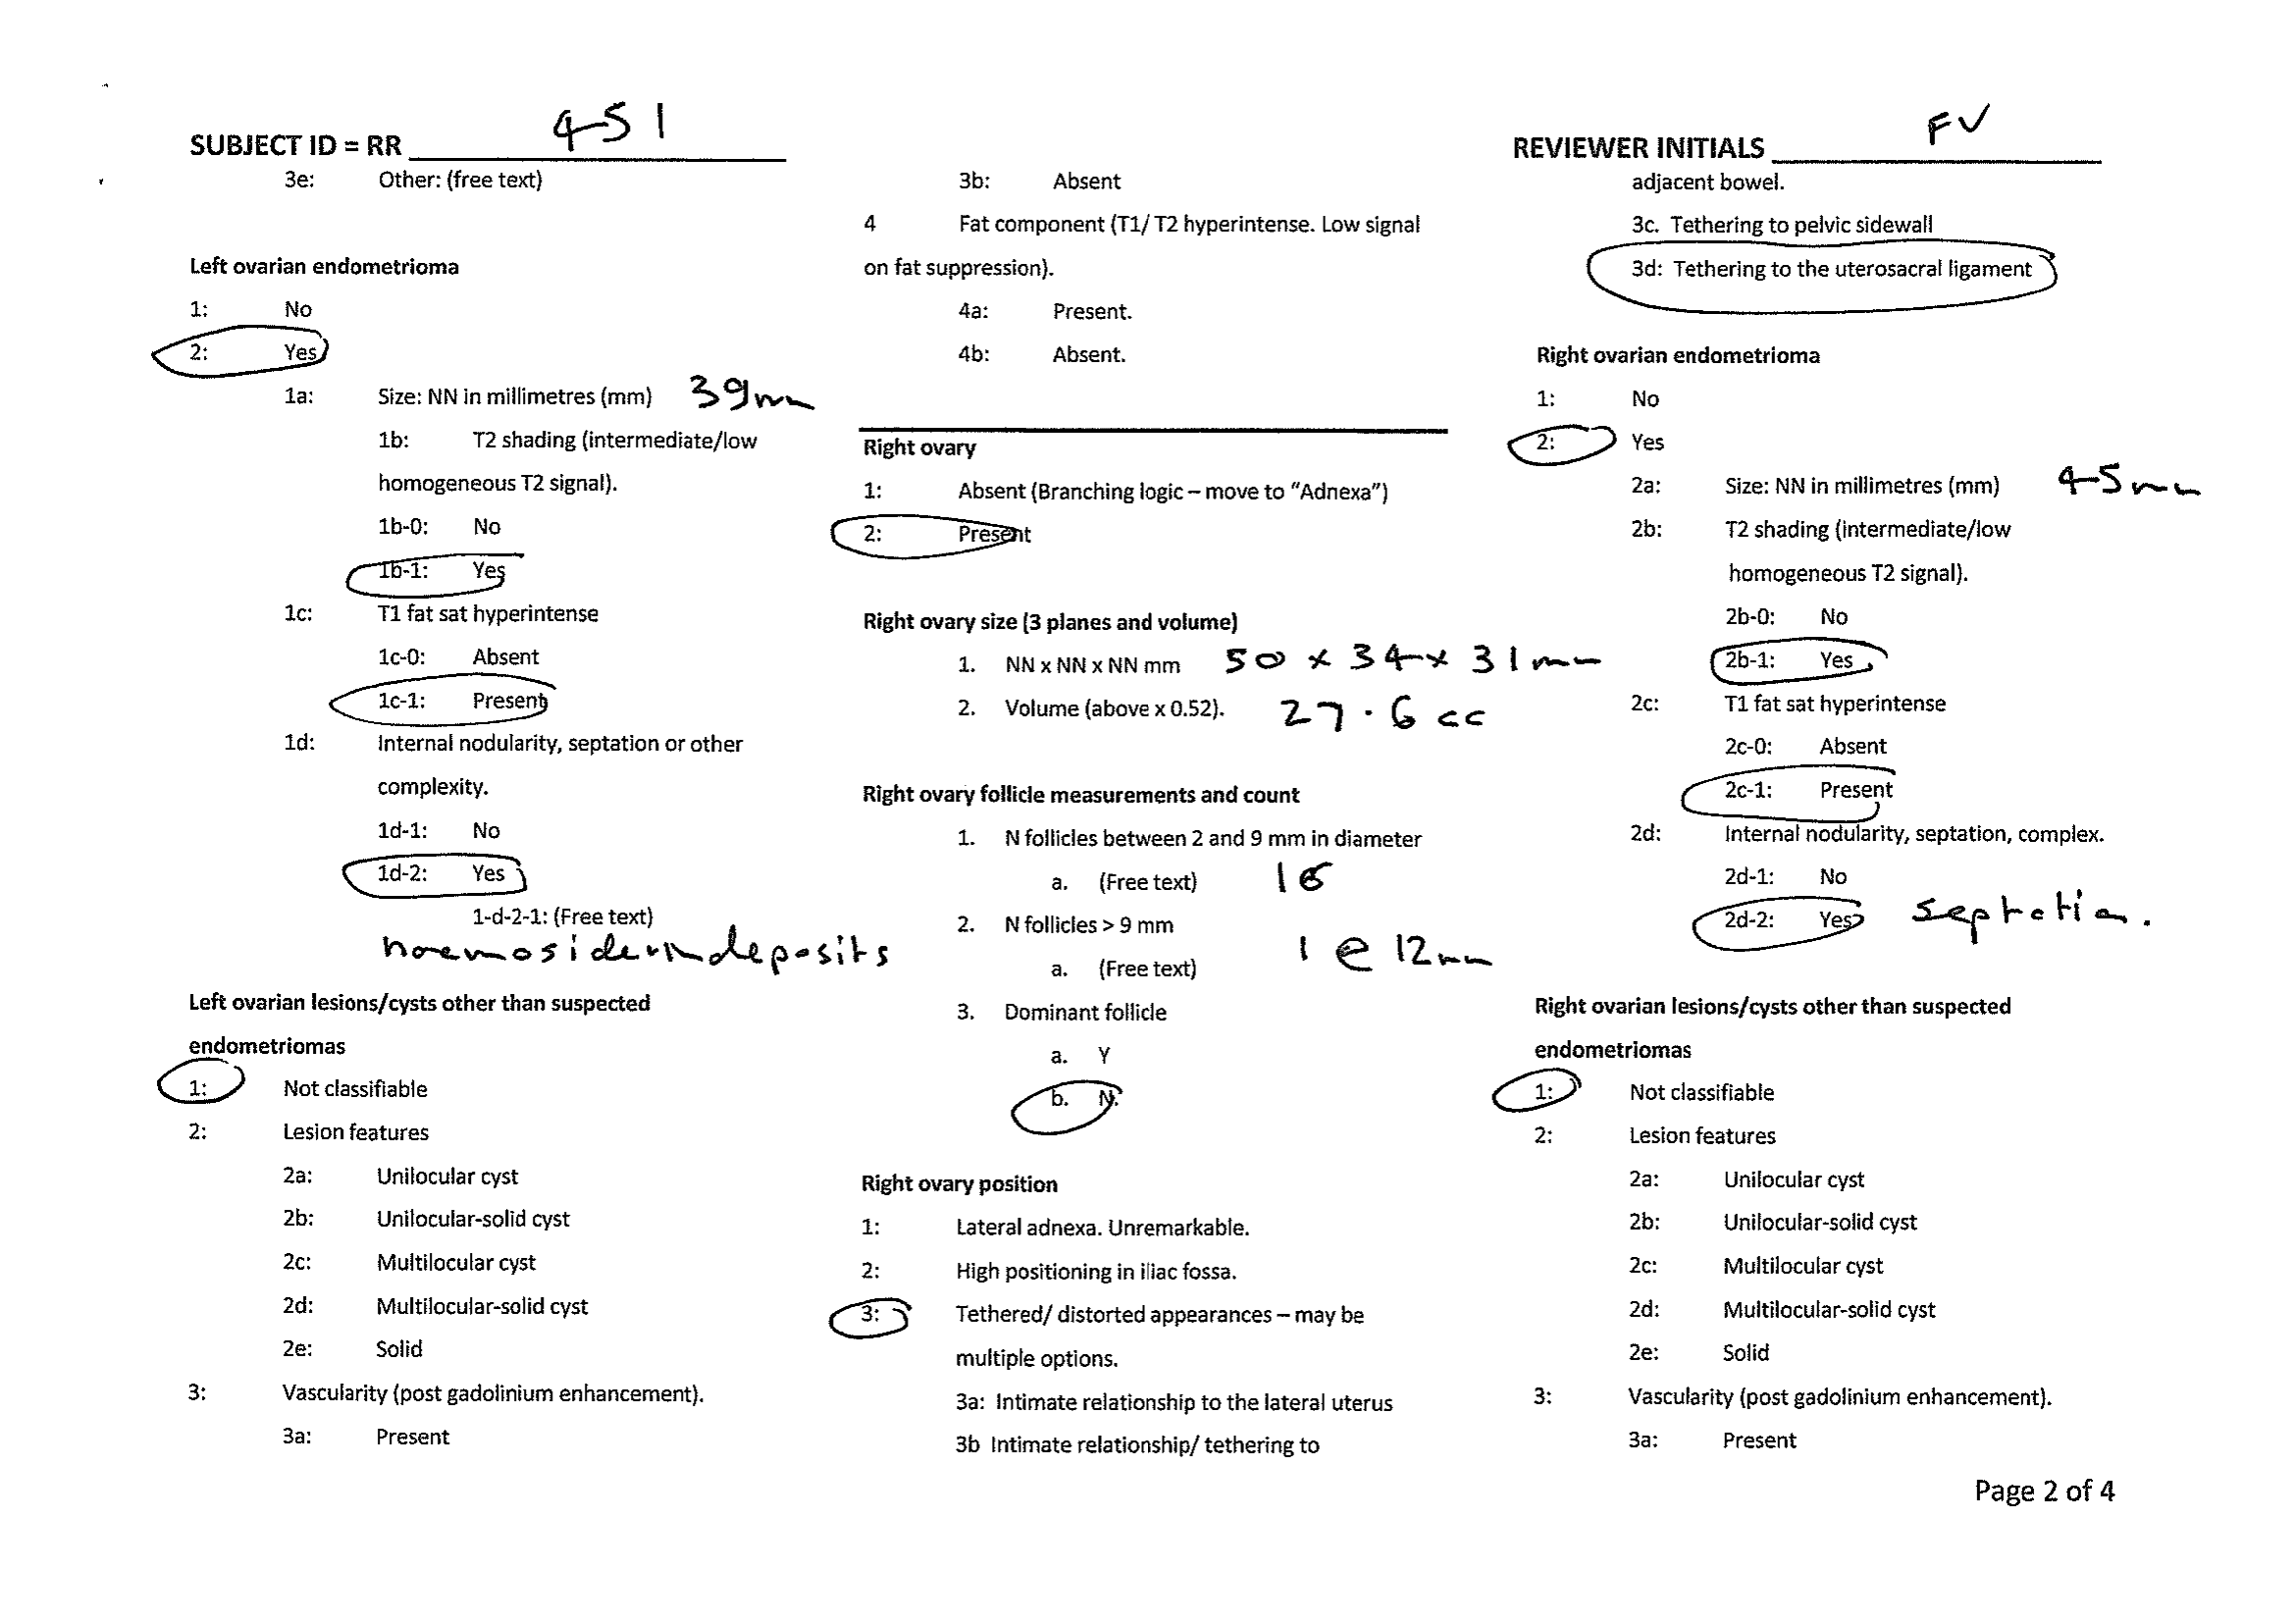 SUBJECT ID = RR 451
REVIEWER INITIALS FV
3e: Other: (free text)
Left ovarian endometrioma
1: No
2: Yes
1a: Size: NN in millimetres (mm) 39mm
1b: T2 shading (intermediate/low
homogeneous T2 signal).
1b-0: No
1b-1: Yes
1c: T1 fat sat hyperintense
1c-0: Absent
1c-1: Present
1d: Internal nodularity, septation or other
complexity.
1d-1: No
1d-2: Yes
1-d-2-1: (Free text)
haemosiderin deposits
Left ovarian lesions/cysts other than suspected
endometriomas
1: Not classifiable
2: Lesion features
2a: Unilocular cyst
2b: Unilocular-solid cyst
2c: Multilocular cyst
2d: Multilocular-solid cyst
2e: Solid
3: Vascularity (post gadolinium enhancement).
3a: Present
3b: Absent
4 Fat component (T1/ T2 hyperintense. Low signal
on fat suppression).
4a: Present.
4b: Absent.
Right ovary
1: Absent (Branching logic – move to “Adnexa”)
2: Present
Right ovary size (3 planes and volume)
1. NN x NN x NN mm 50 x 34 x 31mm
2. Volume (above x 0.52). 27.6 cc
Right ovary follicle measurements and count
1. N follicles between 2 and 9 mm in diameter
a. (Free text) 16
2. N follicles > 9 mm
a. (Free text) 1 @ 12mm
3. Dominant follicle
a. Y
b. N.
Right ovary position
1: Lateral adnexa. Unremarkable.
2: High positioning in iliac fossa.
3: Tethered/ distorted appearances – may be
multiple options.
3a: Intimate relationship to the lateral uterus
3b Intimate relationship/ tethering to
adjacent bowel.
3c. Tethering to pelvic sidewall
3d: Tethering to the uterosacral ligament
Right ovarian endometrioma
1: No
2: Yes
2a: Size: NN in millimetres (mm) 45mm
2b: T2 shading (intermediate/low
homogeneous T2 signal).
2b-0: No
2b-1: Yes
2c: T1 fat sat hyperintense
2c-0: Absent
2c-1: Present
2d: Internal nodularity, septation, complex.
2d-1: No
2d-2: Yes septation.
Right ovarian lesions/cysts other than suspected
endometriomas
1: Not classifiable
2: Lesion features
2a: Unilocular cyst
2b: Unilocular-solid cyst
2c: Multilocular cyst
2d: Multilocular-solid cyst
2e: Solid
3: Vascularity (post gadolinium enhancement).
3a: Present
Page 2 of 4